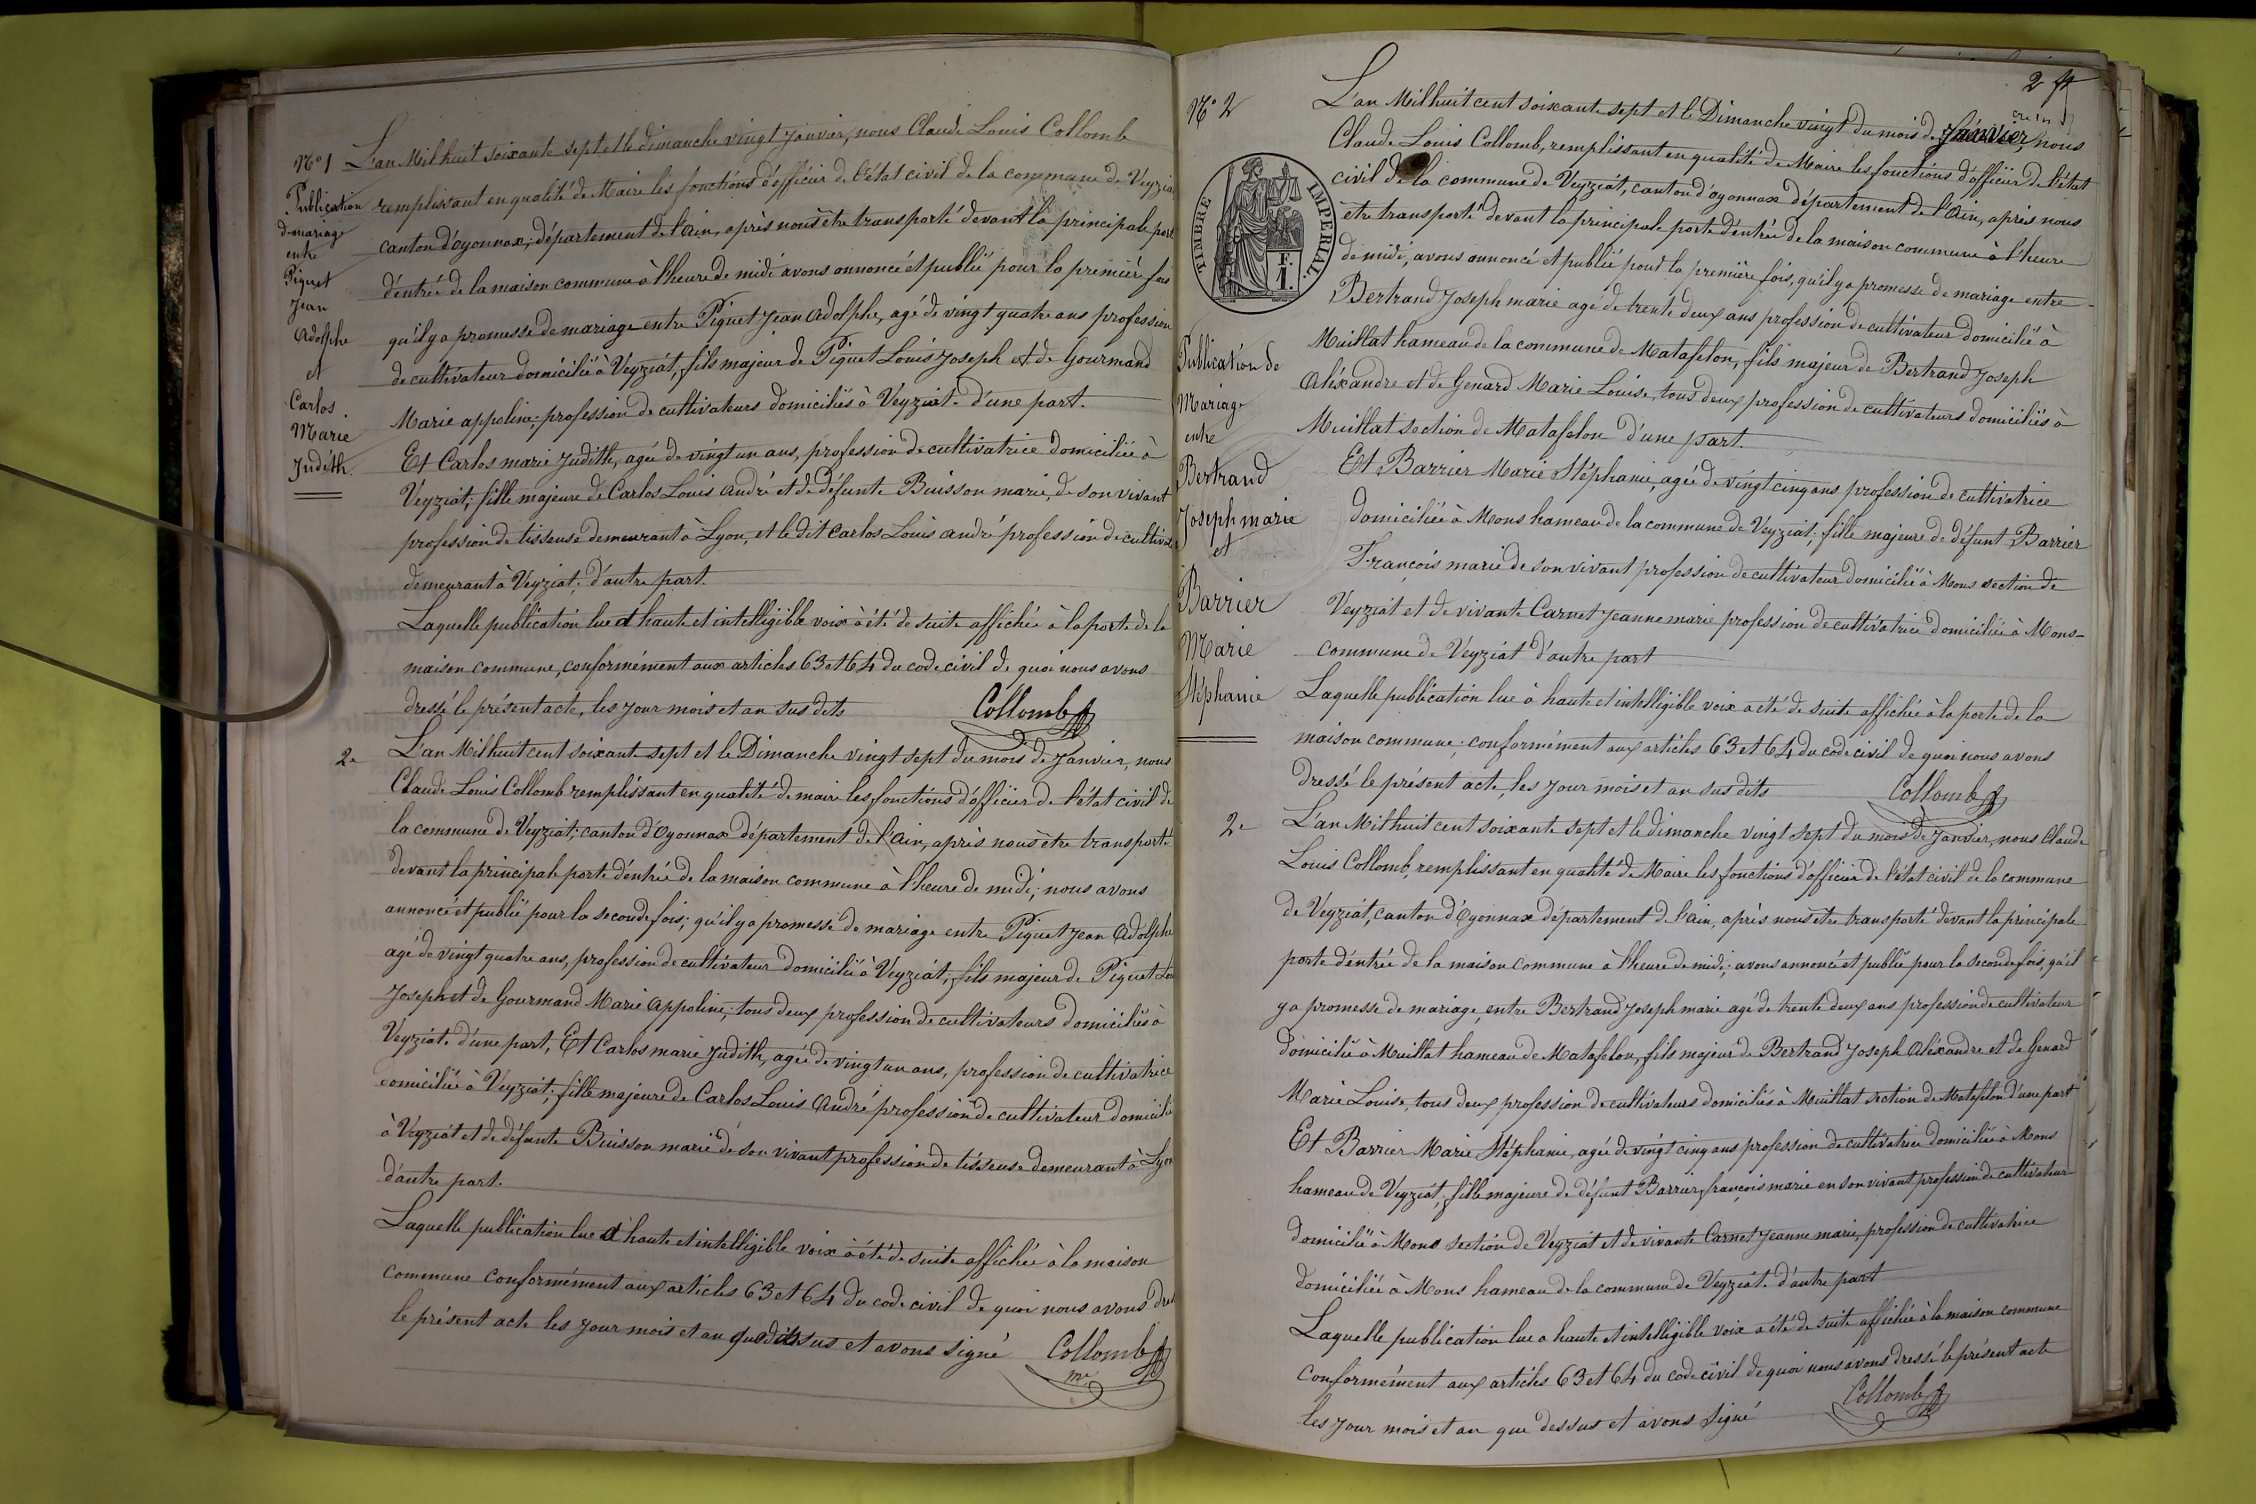 N° 1
Publication
de mariage
entre
Piquet
Jean
Adolphe
et
Carlos
Marie
Judith
L'an Mil huit soixante sept et le dimanche vingt Janvier, nous Claude Louis Collomb
remplissant en qualité de Maire les fonctions d'officier de l'état civil de la commune de Veyziat
canton d'oyonnax, département de l'Ain, après nous être transporté devant la principale porte
d'entrée de la maison commune à l'heure de midi avons annoncé et publié pour la première fois
qu'il y a promesse de mariage entre Piquet Jean Adolphe, agé de vingt quatre ans profession
de cultivateur domicilié à Veyziat, fils majeur de Piquet Louis Joseph et de Gourmand
Marie appoline, profession de cultivateurs domiciliés à Veyziat d'une part.
Et Carlos marie Judith, agée de vingt un ans, profession de cultivatrice domiciliée à
Veyziat; fille majeure de Carlos Louis André et de défunte Buisson marie, de son vivant
profession de tisseuse demeurant à Lyon, et le dit Carlos Louis andré profession de cultivat
demeurant à Veyziat, d'autre part.
Laquelle publication lue à haute et intelligible voix à été de suite affichée à la porte de la
maison commune, conformément aux articles 63 et 64 du code civil de quoi nous avons
dressé le présent acte, les jour mois et an sus dits
Collomb
2e
L'an Mil huit cent soixante sept et le Dimanche vingt sept du mois de Janvier, nous
Claude Louis Collomb remplissant en qualité de maire les fonctions d'officier de l'état civil de
la commune de Veyziat; canton d'Oyonnax département de l'Ain, après nous être transporté
devant la principale porte d'entrée de la maison commune à l'heure de midi, nous avons
annoncé et publié pour la seconde fois; qu'il y a promesse de mariage entre Piquet Jean Adolphe
agé de vingt quatre ans, profession de cultivateur domicilié à Veyziat, fils majeur de Piquet Lou
Joseph et de Gourmand Marie Appoline, tous deux profession de cultivateurs domiciliés à
Veyziat d'une part, Et Carlos marie Judith, agée de vingt un ans, profession de cultivatrice
domiciliée à Veyziat; fille majeure de Carlos Louis André profession de cultivateur domicilié
à Veyziat et de défunte Buisson marie de son vivant profession de tisseuse demeurant à Lyon
d'autre part.
Laquelle publication lue à haute et intelligible voix à été de suite affichée à la maison
commune conformément aux articles 63 et 64 du code civil de quoi nous avons dres
le présent acte les jour mois et an que dessus et avons signé
Collomb
me
2
N° 2
TIMBRE IMPERIAL.
F. 1.
Publication de
Mariage
entre
Bertrand
Joseph marie
et
Barrier
Marie
Stéphanie
L'an Mil huit cent soixante sept et le Dimanche vingt du mois de Janvier, nous
Claude Louis Collomb, remplissant en qualité de Maire les fonctions d'officier de l'état
civil de la commune de Veyziat, canton d'oyonnax département de l'Ain, après nous
être transporté devant la principale porte d'entrée de la maison commune à l'heure
de midi, avons annoncé et publié pour la première fois, qu'il y a promesse de mariage entre
Bertrand Joseph marie agé de trente deux ans profession de cultivateur domicilié à
Muillat hameau de la commune de Matafelon, fils majeur de Bertrand Joseph
Aléxandre et de Genard Marie Louise, tous deux profession de cultivateurs domiciliés à
Muillat section de Matafelon d'une part.
Et Barrier Marie Stéphanie, agée de vingt cinq ans profession de cultivatrice
domiciliée à Mons hameau de la commune de Veyziat; fille majeure de défunt Barrier
François marie de son vivant profession de cultivateur domicilié à Mons section de
Veyziat et de vivante Carnet Jeanne marie profession de cultivatrice domiciliée à Mons
commune de Veyziat d'autre part
Laquelle publication lue à haute et intelligible voix a été de suite affichée à la porte de la
maison commune; conformément aux articles 63 et 64 du code civil de quoi nous avons
dressé le présent acte, les jour mois et an sus dits
Collomb
2e
L'an Mil huit cent soixante sept et le dimanche vingt sept du mois de Janvier, nous Claude
Louis Collomb, remplissant en qualité de Maire les fonctions d'officier de l'état civil de la commune
de Veyziat, canton d'Oyonnax département de l'Ain, après nous être transporté devant la principale
porte d'entrée de la maison commune à l'heure de midi; avons annoncé et publié pour la seconde fois, qu'il
y a promesse de mariage, entre Bertrand Joseph marie agé de trente deux ans profession de cultivateur
domicilié à Muillat hameau de Matafelon, fils majeur de Bertrand Joseph Aléxandre et de Genard
Marie Louise, tous deux profession de cultivateurs domiciliés à Muillat section de Matafelon d'une part
Et Barrier Marie Stéphanie, agée de vingt cinq ans profession de cultivatrice domiciliée à Mons
hameau de Veyziat, fille majeure de défunt Barrier françois marie en son vivant profession de cultivateur
domicilié à Mons section de Veyziat et de vivante Carnet Jeanne marie, profession de cultivatrice
domiciliée à Mons hameau de la commune de Veyziat d'autre part
Laquelle publication lue a haute et intelligible voix a été de suite affichée à la maison commune
conformément aux articles 63 et 64 du code civil de quoi nous avons dressé le présent acte
les jour mois et an que dessus et avons signé
Collomb